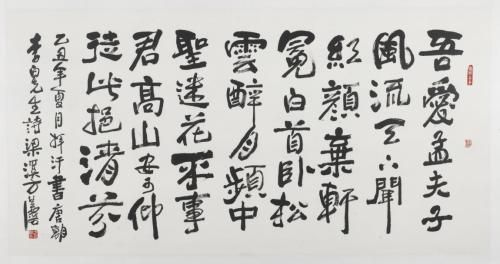 吾愛孟夫子
風流天下聞
紅顏棄軒
冕白首臥松
雲醉月頻中
聖迷花不事
君高山安可仰
徒此挹清芬
乙丑年夏月揮汗書唐朝
李白先生詩梁溪万